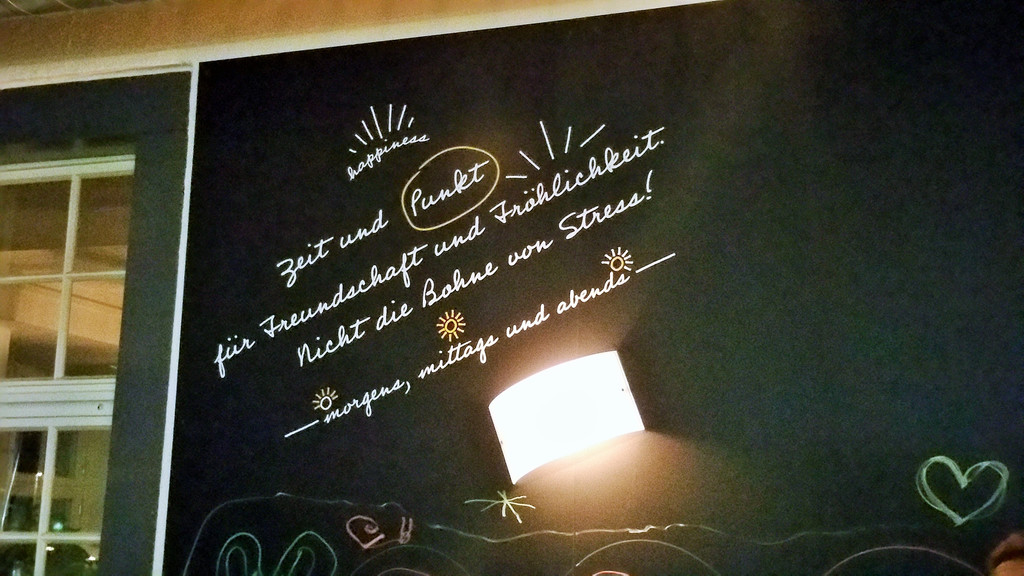 happiness
Zeit und Punkt
für Freundschaft und Fröhlichkeit.
Nicht die Bohne von Stress!
morgens, mittags und abends